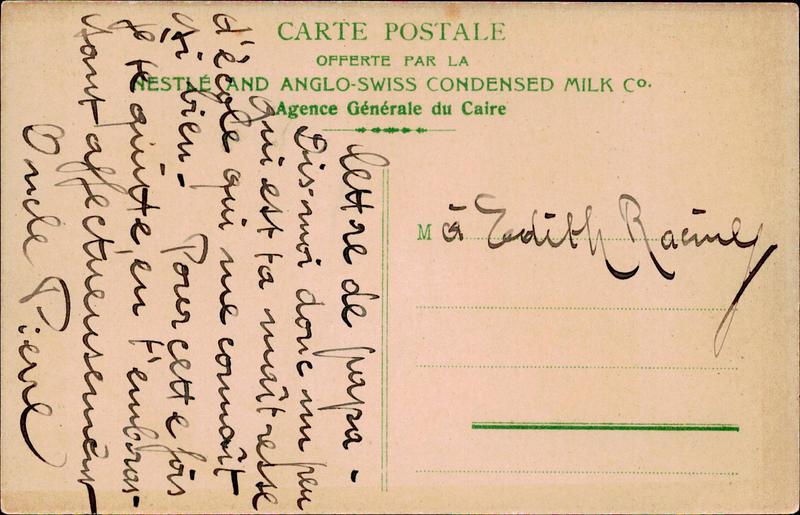 CARTE POSTALE
OFFERTE PAR LA
NESTLÉ AND ANGLO-SWISS CONDENSED MILK Co.
Agence Générale du Caire
lettre de papa -
Dis-moi donc un peu
qui est ta maîtresse
d'école qui me connaît
si bien - Pour cette fois
je te quitte en t'embras-
sant affectueusement
Oncle Pierre
M à Edith Racine